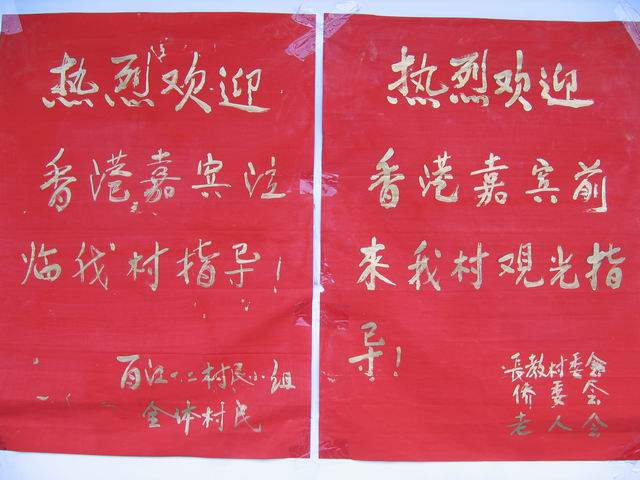 热烈欢迎
香港嘉宾莅
临我村指导！
百江一、二村民小组
全体村民
热烈欢迎
香港嘉宾前
来我村观光指
导！
長教村委会
侨委会
老人会